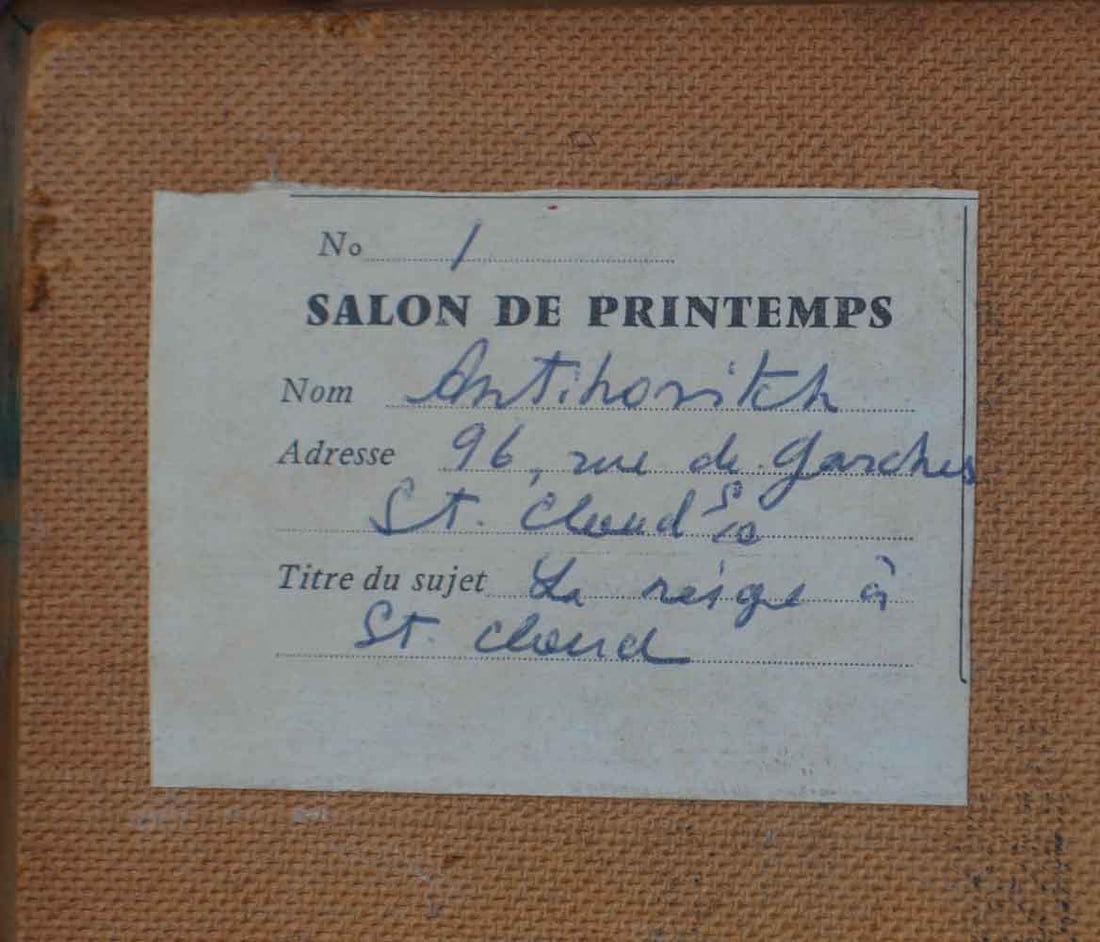 No 1
SALON DE PRINTEMPS
Nom Antihovitch
Adresse 96, rue de Garches
St. Cloud S/O
Titre du sujet La neige à
St. Cloud